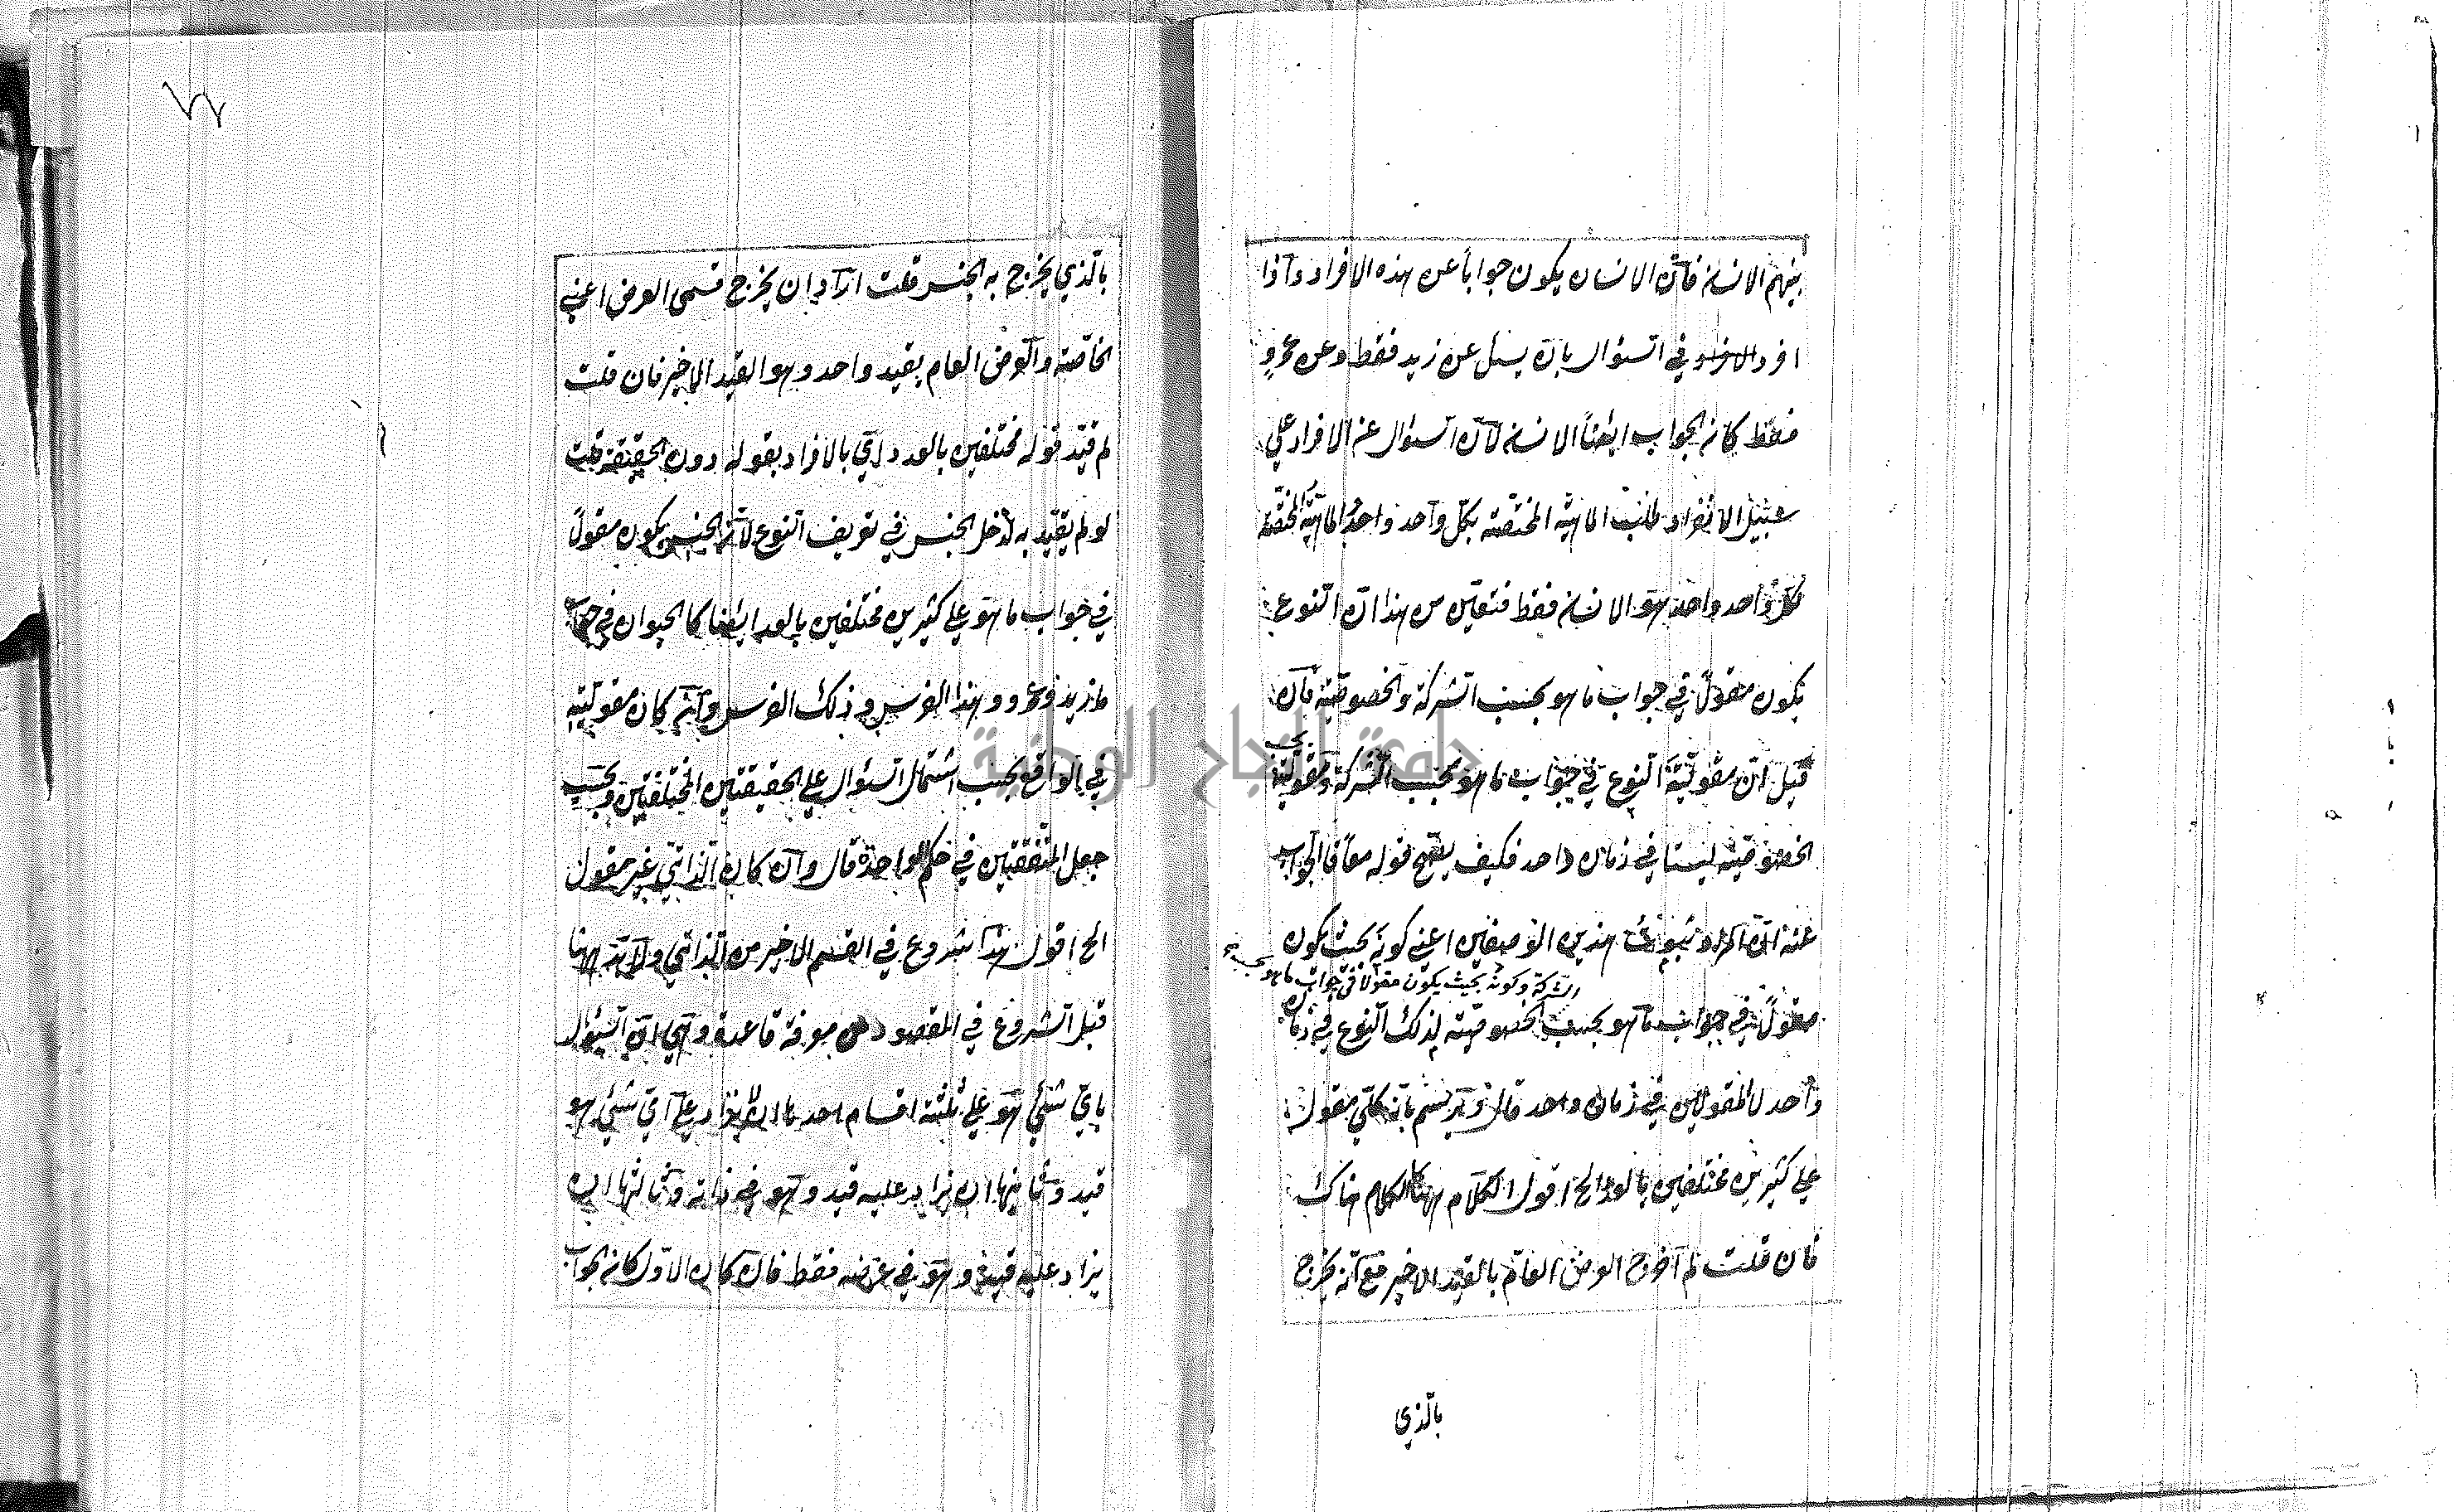 بينهم الانسان فان الانسان يكون جوابا عن هذه الافراد واذا
افرد الافراد في السؤال بان يسئل عن زيد فقط وعن عمرو
فقط كان الجواب ايضا الانسان لان السؤال عن الافراد على
سبيل الانفراد طلب الماهية المختصة بكل واحد واحد والماهية المختصة
بكل واحد واحد هو الانسان فقط فتعين من هذا ان النوع
يكون مقولا في جواب ما هو بحسب الشركة والخصوصية فان
قيل ان مقولية النوع في جواب ما هو بحسب الشركة ومقوليته بحسب
الخصوصية ليستا في زمان واحد فكيف يصح قوله معا فالجواب
عنه ان المراد ثبوت هذين الوصفين اعني كونه بحيث يكون
مقولا في جواب ما هو بحسب الشركة وكونه بحيث يكون مقولا في جواب ما هو بحسب
الخصوصية لذلك النوع في زمان
واحد لا المقولين في زمان واحد قال ويرسم بانه كلي مقول
على كثيرين مختلفين بالعدد الخ اقول الكلام ههنا كالكلام هناك
فان قلت لم اخرج العرض العام بالقيد الاخير مع انه يخرج
بالذي
بالذي يخرج به الجنس قلت اراد ان يخرج قسمي العرض اعني
الخاصة والعرض العام بقيد واحد وهو القيد الاخير فان قلت
لم قيد قوله مختلفين بالعدد اي بالافراد بقوله دون الحقيقة قلت
لو لم يقيد به لدخل الجنس في تعريف النوع لان الجنس يكون مقولا
في جواب ما هو على كثيرين مختلفين بالعدد ايضا كالحيوان في جواب
ما زيد وعمرو وهذا الفرس وذلك الفرس وان كان مقوليته
في الواقع بحسب اشتمال السؤال على الحقيقتين المختلفتين وبحسب
جعل المتفقتين في حكم الواحدة قال وان كان الذاتي غير مقول
الخ اقول هذا شروع في القسم الاخير من الذاتي ولا بد ههنا
قبل الشروع في المقصود من معرفة قاعدة وهي ان السؤال
باي شئ هو على ثلثة اقسام احدها ان لا يزاد على اي شئ هو
قيد وثانيها ان يزاد عليه قيد وهو في ذاته وثالثها ان
يزاد عليه قيد وهو في عرضه فقط فان كان الاول كان الجواب
جامعة النجاح الوطنية